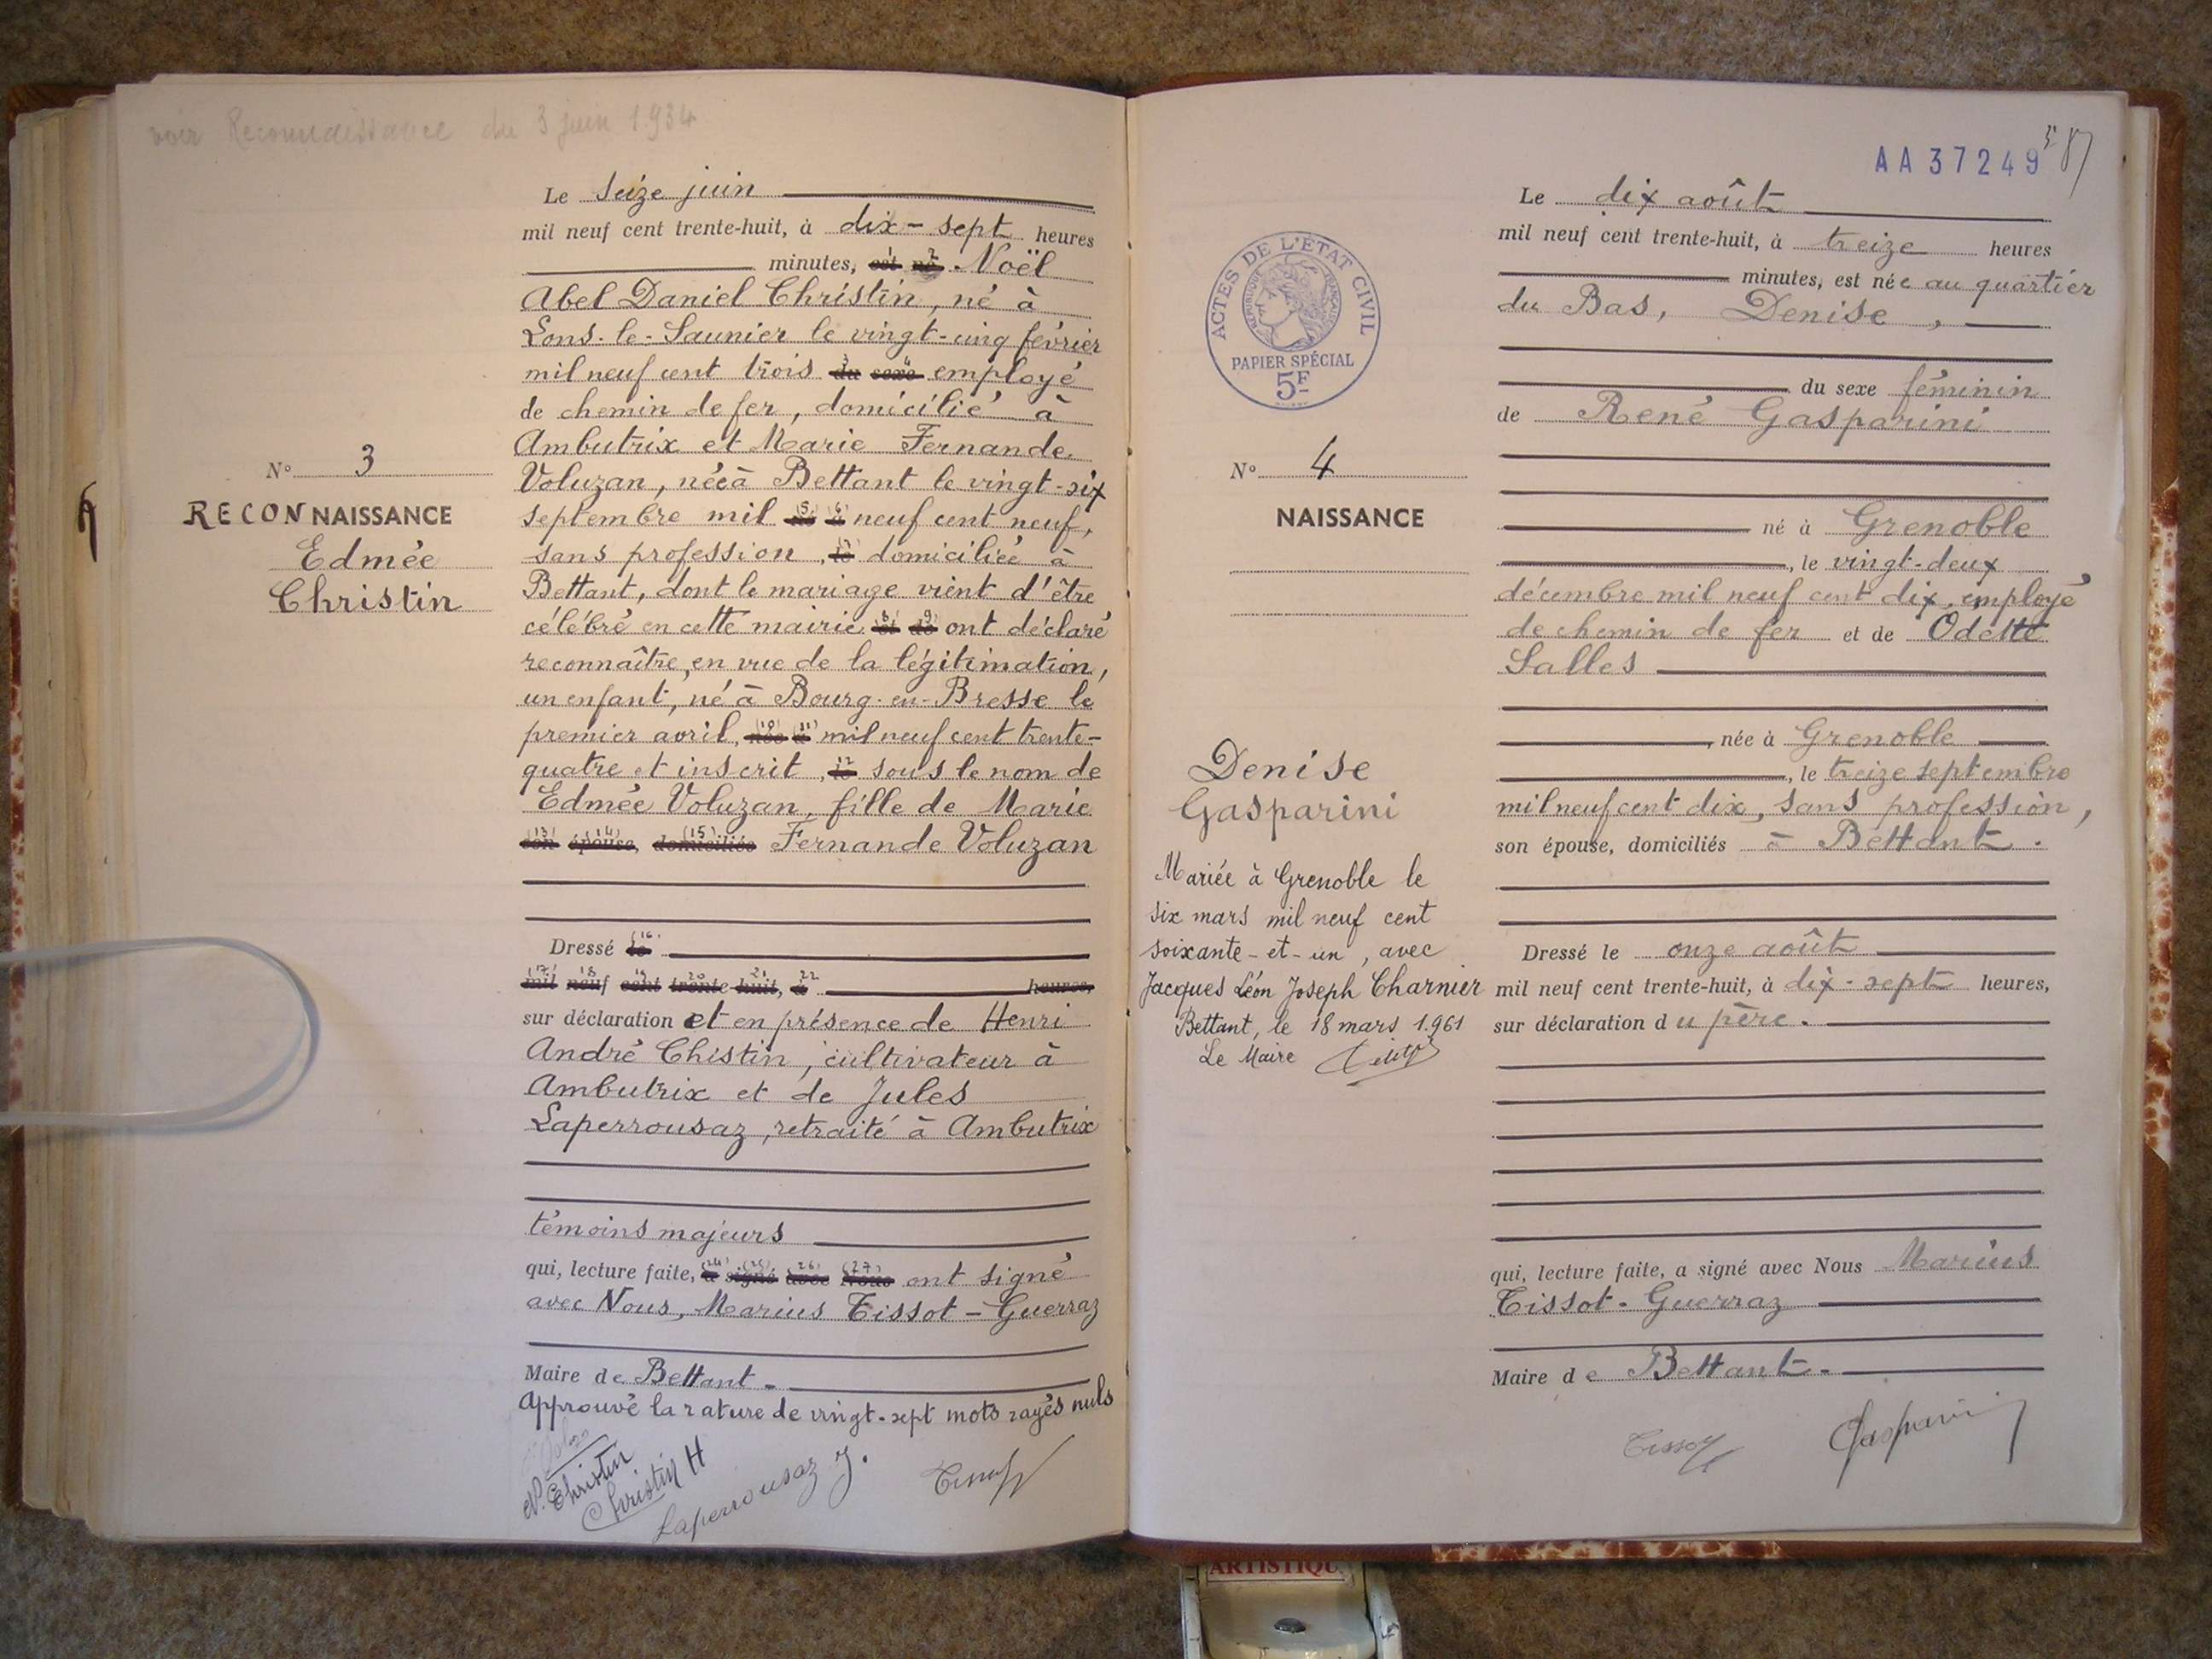 voir Reconnaissance du 3 juin 1934
Le seize juin
mil neuf cent trente-huit, à dix-sept heures
minutes, est né Noël
Abel Daniel Christin, né à
Lons-le-Saunier le vingt-cinq février
mil neuf cent trois du sexe employé
de chemin de fer, domicilié à
Ambutrix et Marie Fernande
Voluzan, née à Bettant le vingt-six
septembre mil né à neuf cent neuf,
sans profession, le domiciliée à
Bettant, dont le mariage vient d'être
célébré en cette mairie et de ont déclaré
reconnaître, en vue de la légitimation,
un enfant, né à Bourg-en-Bresse le
premier avril, née à mil neuf cent trente-
quatre et inscrit, le sous le nom de
Edmée Voluzan, fille de Marie
son épouse, domiciliés Fernande Voluzan
Dressé le
mil neuf cent trente-huit, à heures,
sur déclaration et en présence de Henri
André Chistin, cultivateur à
Ambutrix et de Jules
Laperrousaz, retraité à Ambutrix
témoins majeurs
qui, lecture faite, a signé avec Nous ont signé
avec Nous, Marius Tissot-Guerraz
Maire de Bettant.
Approuvé la rature de vingt-sept mots rayés nuls
N. Christin
Christin H
Laperrousaz J.
N° 3
RECONNAISSANCE
Edmée
Christin
AA37249
87
ACTES DE L'ÉTAT CIVIL
RÉPUBLIQUE FRANÇAISE
PAPIER SPÉCIAL
5F
N° 4
NAISSANCE
Denise
Gasparini
Mariée à Grenoble le
six mars mil neuf cent
soixante-et-un, avec
Jacques Léon Joseph Charnier
Bettant, le 18 mars 1961
Le Maire
Le dix août
mil neuf cent trente-huit, à treize heures
minutes, est née au quartier
du Bas, Denise,
du sexe féminin
de René Gasparini
né à Grenoble
, le vingt-deux
décembre mil neuf cent dix, employé
de chemin de fer et de Odette
Salles
, née à Grenoble
, le treize septembre
mil neuf cent dix, sans profession,
son épouse, domiciliés à Bettant.
Dressé le onze août
mil neuf cent trente-huit, à dix-sept heures,
sur déclaration du père.
qui, lecture faite, a signé avec Nous Marius
Tissot-Guerraz
Maire de Bettant.
Tissot
Gasparini
ARTISTIQU